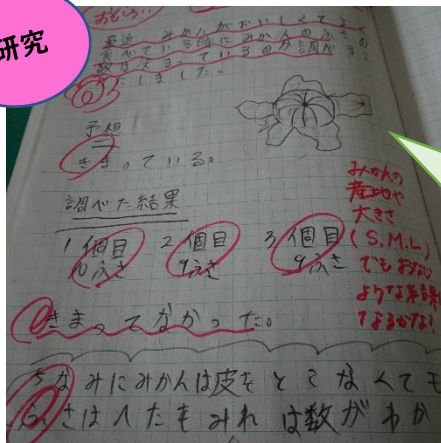 研究
おもしろい
最近 みかんがおいしくてよく
食べている時にみかんのふさの
数は決まっているのか調べ
しました。
予想
きまっている。
調べた結果
1個目 2個目 3個目
10ふさ 9ふさ 9ふさ
みかんの
産地や
大きさ
(S,M,L)
でもおなじ
ような結果に
なるかな?
きまってなかった。
ちなみにみかんは皮をとらなくても
ふさはへたをみれば数がわか